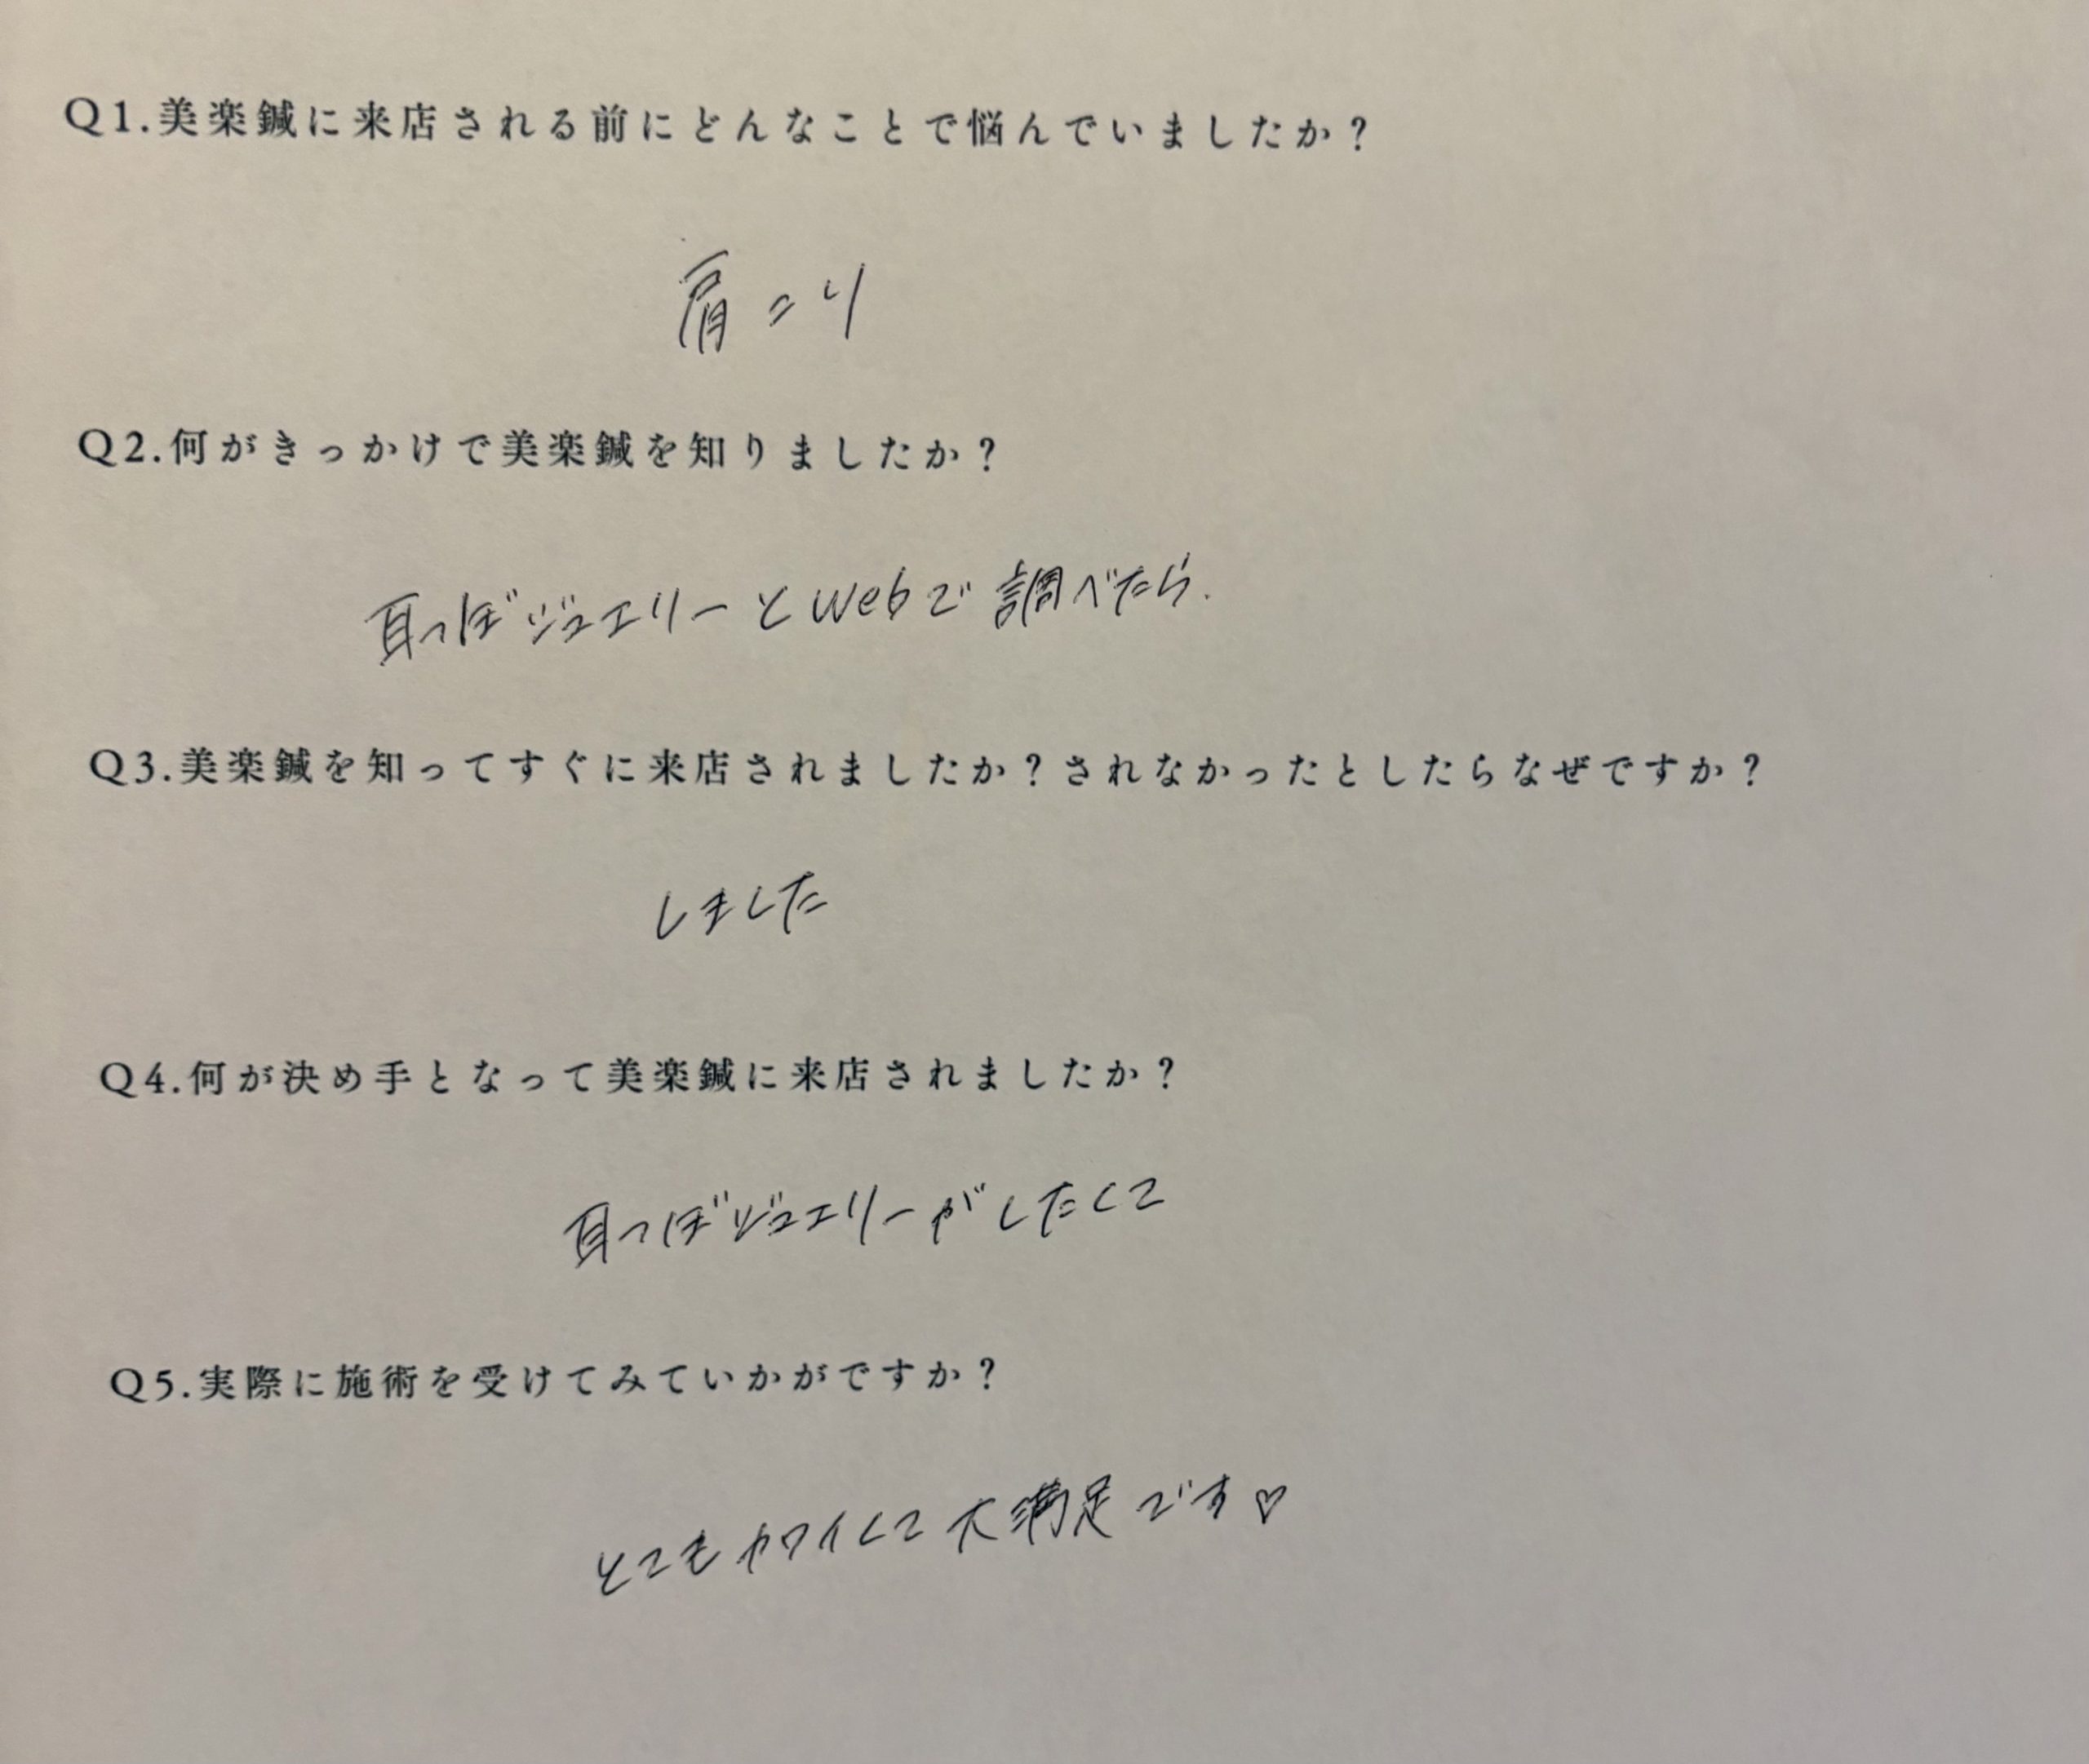 Q1.美楽鍼に来店される前にどんなことで悩んでいましたか？
肩こり
Q2.何がきっかけで美楽鍼を知りましたか？
耳つぼジュエリーとwebで調べたら.
Q3.美楽鍼を知ってすぐに来店されましたか？されなかったとしたらなぜですか？
しました
Q4.何が決め手となって美楽鍼に来店されましたか？
耳つぼジュエリーがしたくて
Q5.実際に施術を受けてみていかがですか？
とてもカワイくて大満足です♡